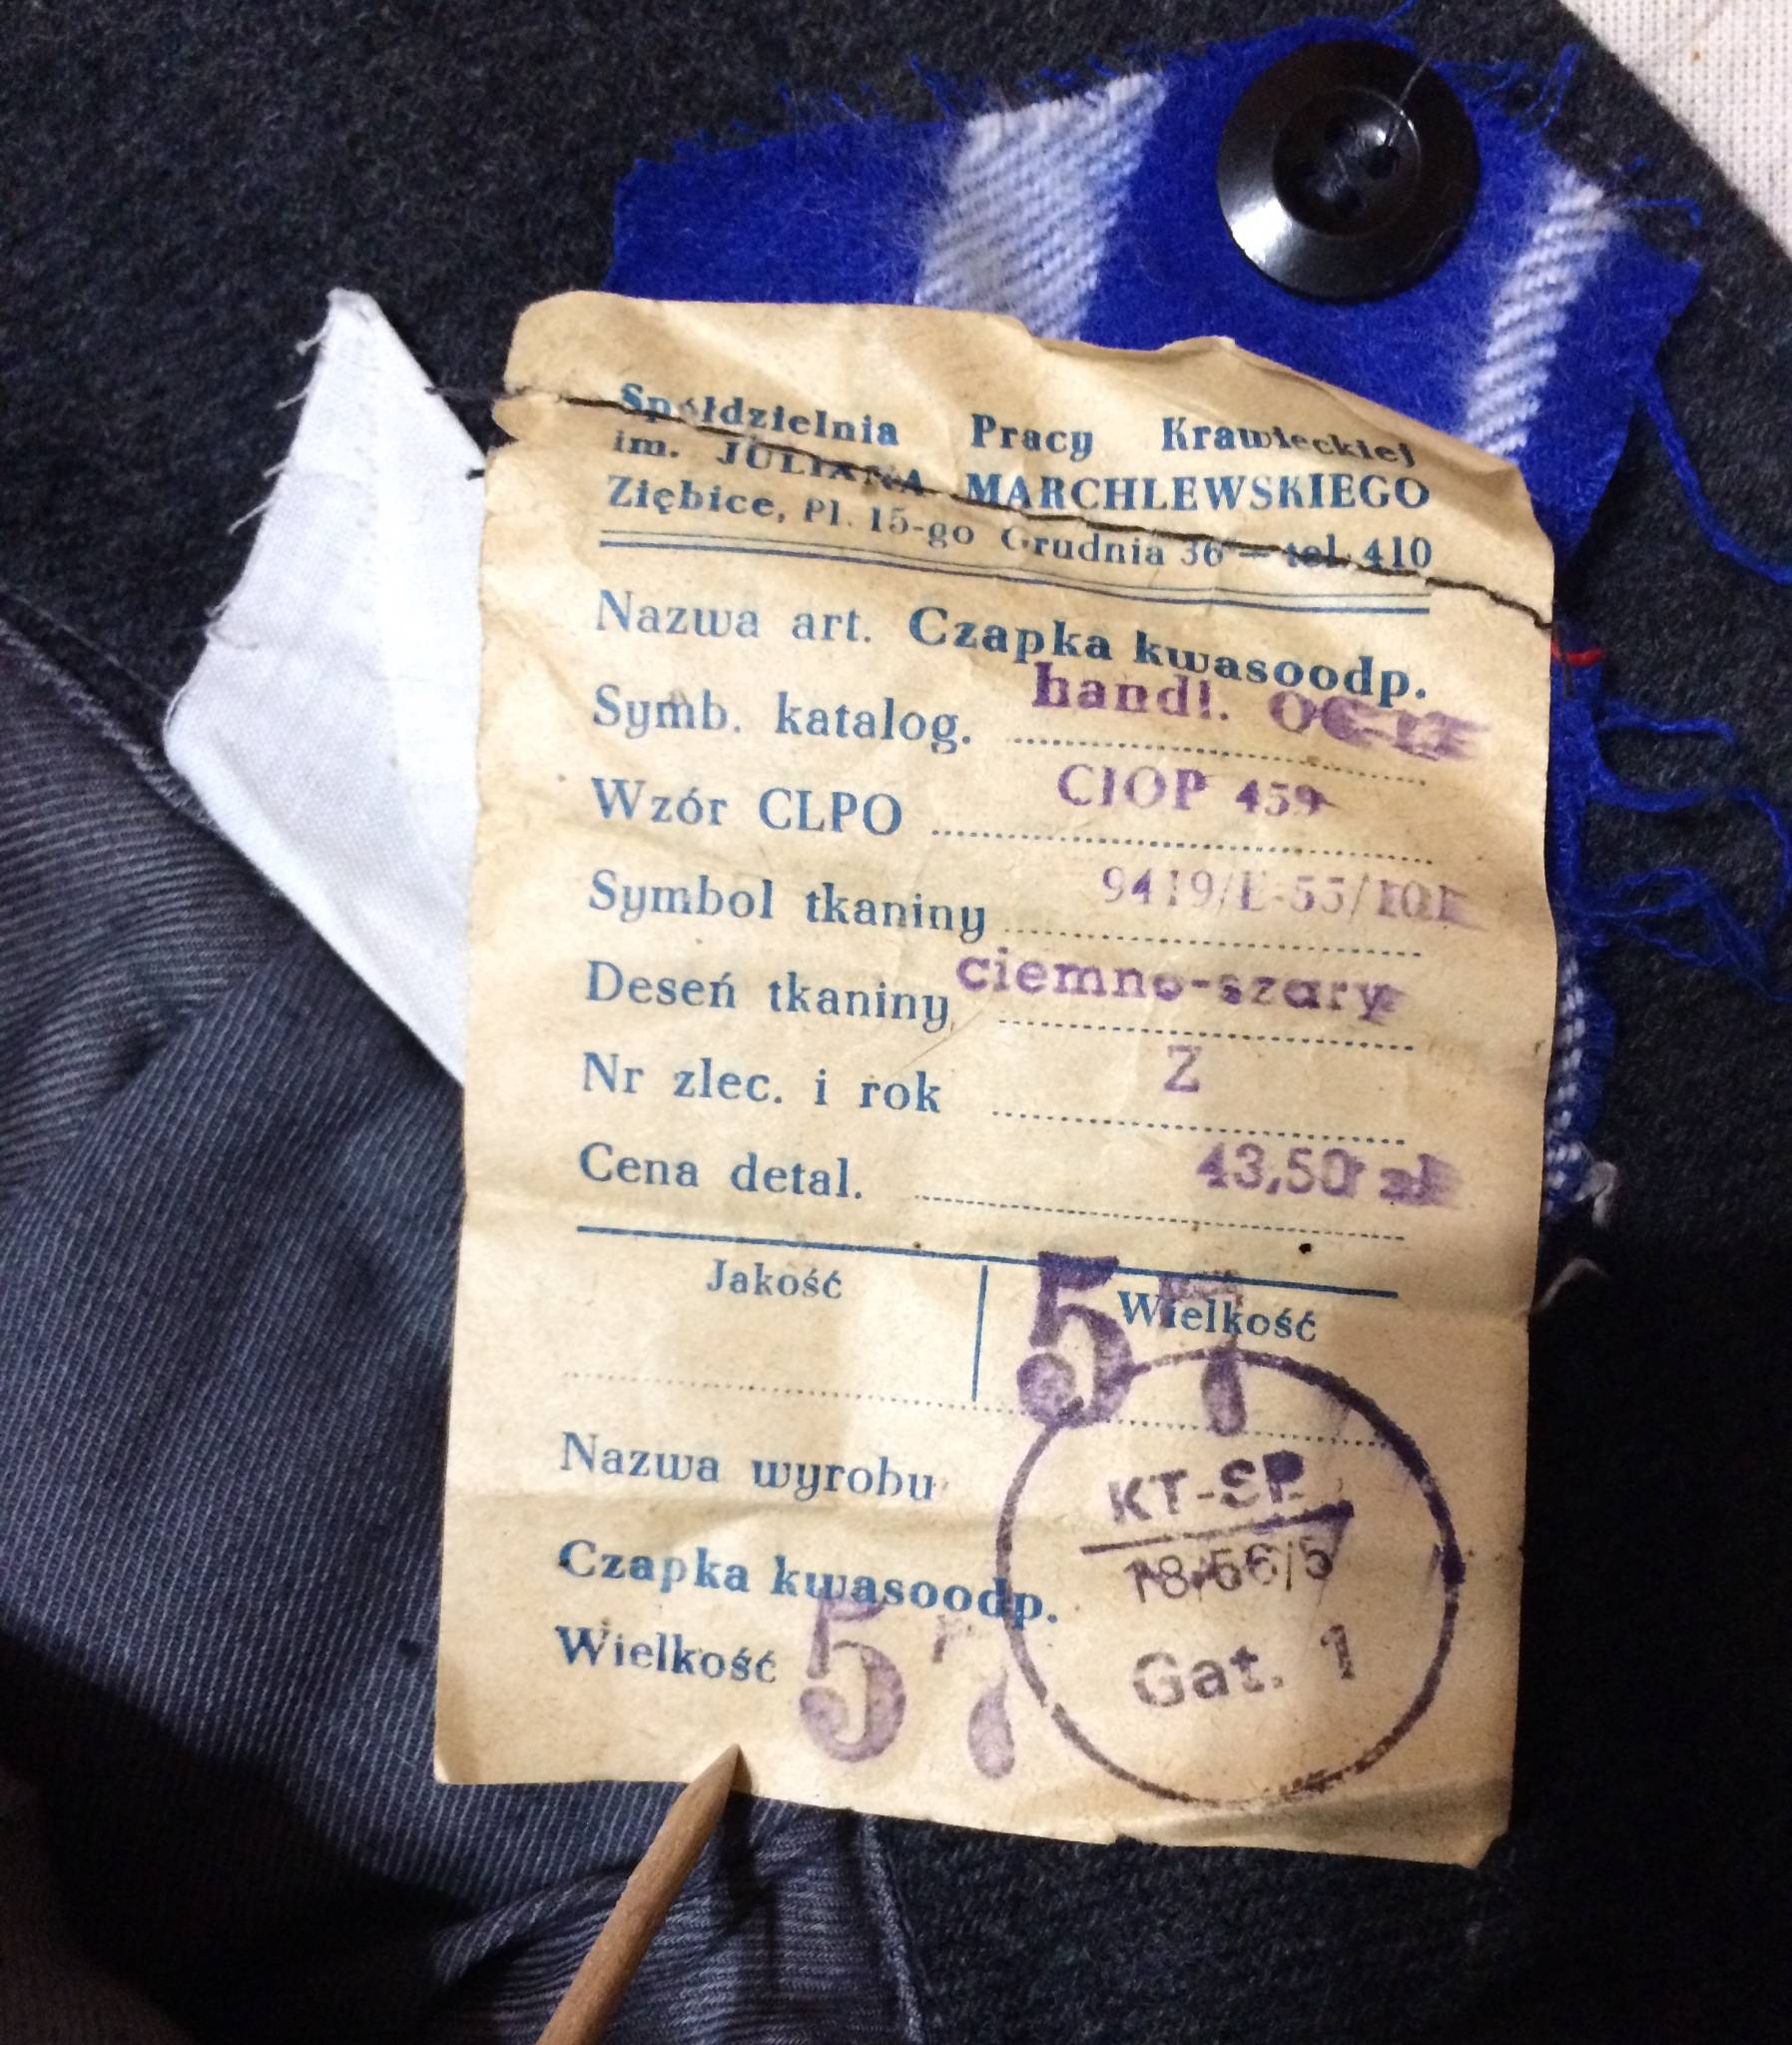 Spółdzielnia Pracy Krawieckiej
im. JULIANA MARCHLEWSKIEGO
Ziębice, Pl. 15-go Grudnia 36 — tel. 410
Nazwa art. Czapka kwasoodp.
Symb. katalog. handl.
Wzór CLPO CIOP 459
Symbol tkaniny
Deseń tkaniny ciemno-szary
Nr zlec. i rok Z
Cena detal. 43,50 zł
Jakość Wielkość
57
KT-SP
18/66/5
Gat. 1
Nazwa wyrobu
Czapka kwasoodp.
Wielkość 57